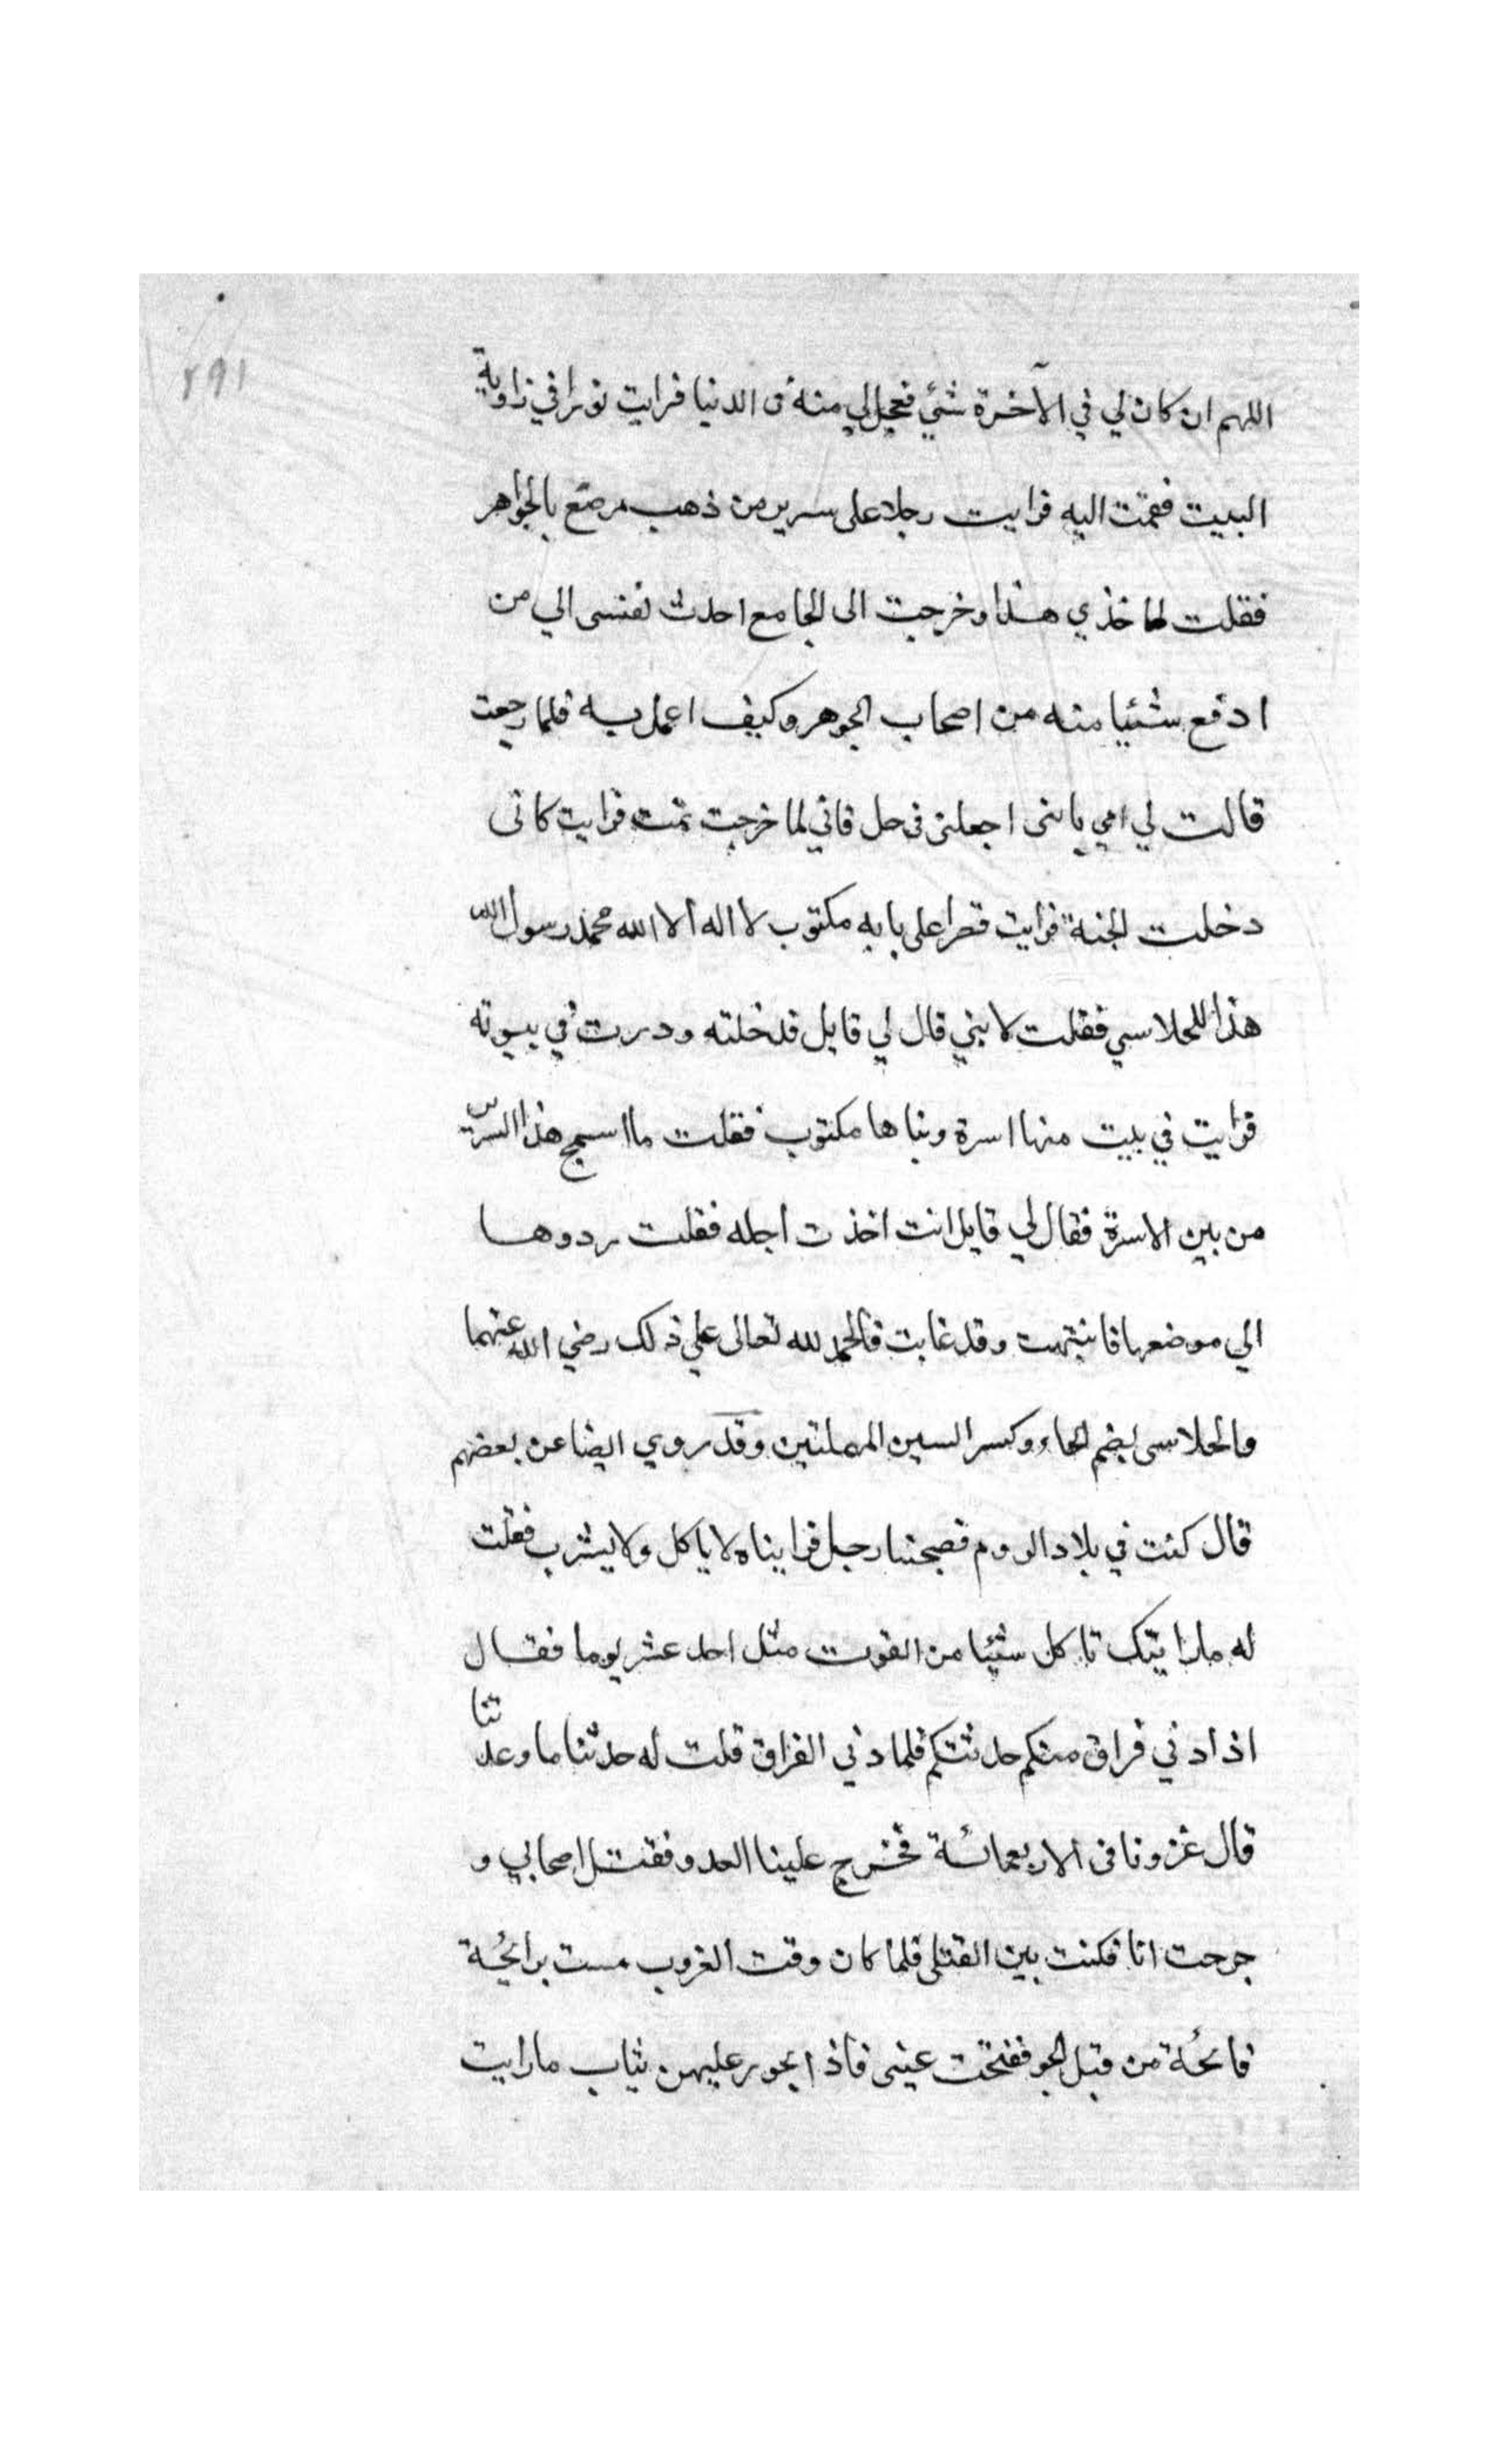 ٢٩١
اللهم ان كان لي في الآخرة شئي فعجل لي منه فى الدنيا فرايت نورا في زاوية
البيت فقمت اليه فرايت رجلا على سرير من ذهب مرصع بالجواهر
فقلت لها خذي هذا وخرجت الى الجامع احدث نفسى الي من
ادفع شئيا منه من اصحاب الجوهر وكيف اعمل به فلما رجعت
قالت لي امي يا بنى اجعلنى فى حل فاني لما خرجت نمت فرايت كانى
دخلت الجنة فرايت قصرا على بابه مكتوب لا اله الا الله محمد رسول الله
هذا للحلاسي فقلت لابني قال لي قايل فدخلته ودرت في بيوته
فرايت في بيت منها اسرة وبناها مكتوب فقلت ما اسمج هذا السرير
من بين الاسرة فقال لي قايل انت اخذت اجله فقلت ردوها
الي موضعها فانتبهت وقد غابت فالحمد لله تعالى علي ذلك رضي الله عنهما
والحلاسى بضم الحاء وكسر السين المهملتين وقد روي ايضا عن بعضهم
قال كنت في بلاد الروم فصحبنا رجل فرايناه لا ياكل ولا يشرب فقلت
له ما رايتك تاكل شيئا من القوت مثل احد عشر يوما فقال
اذا دني فراق منكم حدثتكم فلما دني الفراق قلت له حدثنا ما وعدتنا
قال غزونا فى الاربعمائة فخرج علينا العدو فقتل اصحابي و
جرحت انا فكنت بين القتلى فلما كان وقت الغروب مست برايحة
فائحة من قبل الجو ففتحت عينى فاذا بحور عليهن ثياب ما رايت